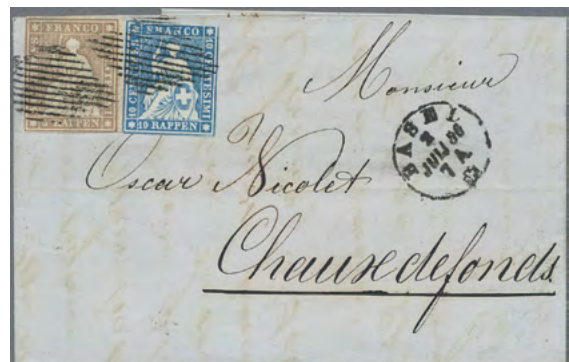 FRANCO
5 RAPPEN
FRANCO
10 CENTESIMI
10 RAPPEN
Monsieur
BASEL
2
JULI 56
7 A
Oscar Nicolet
Chauxdefonds